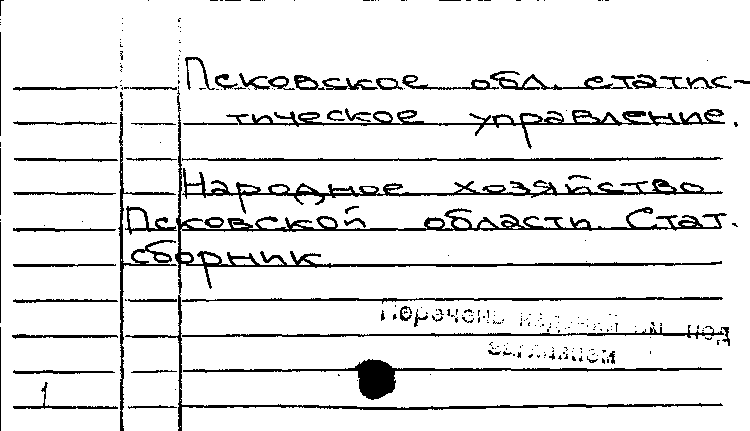 Псковское обл. статис-
тическое управление.
Народное хозяйство
Псковской области. Стат.
сборник
Перечень изданий см. под
заглавием
1